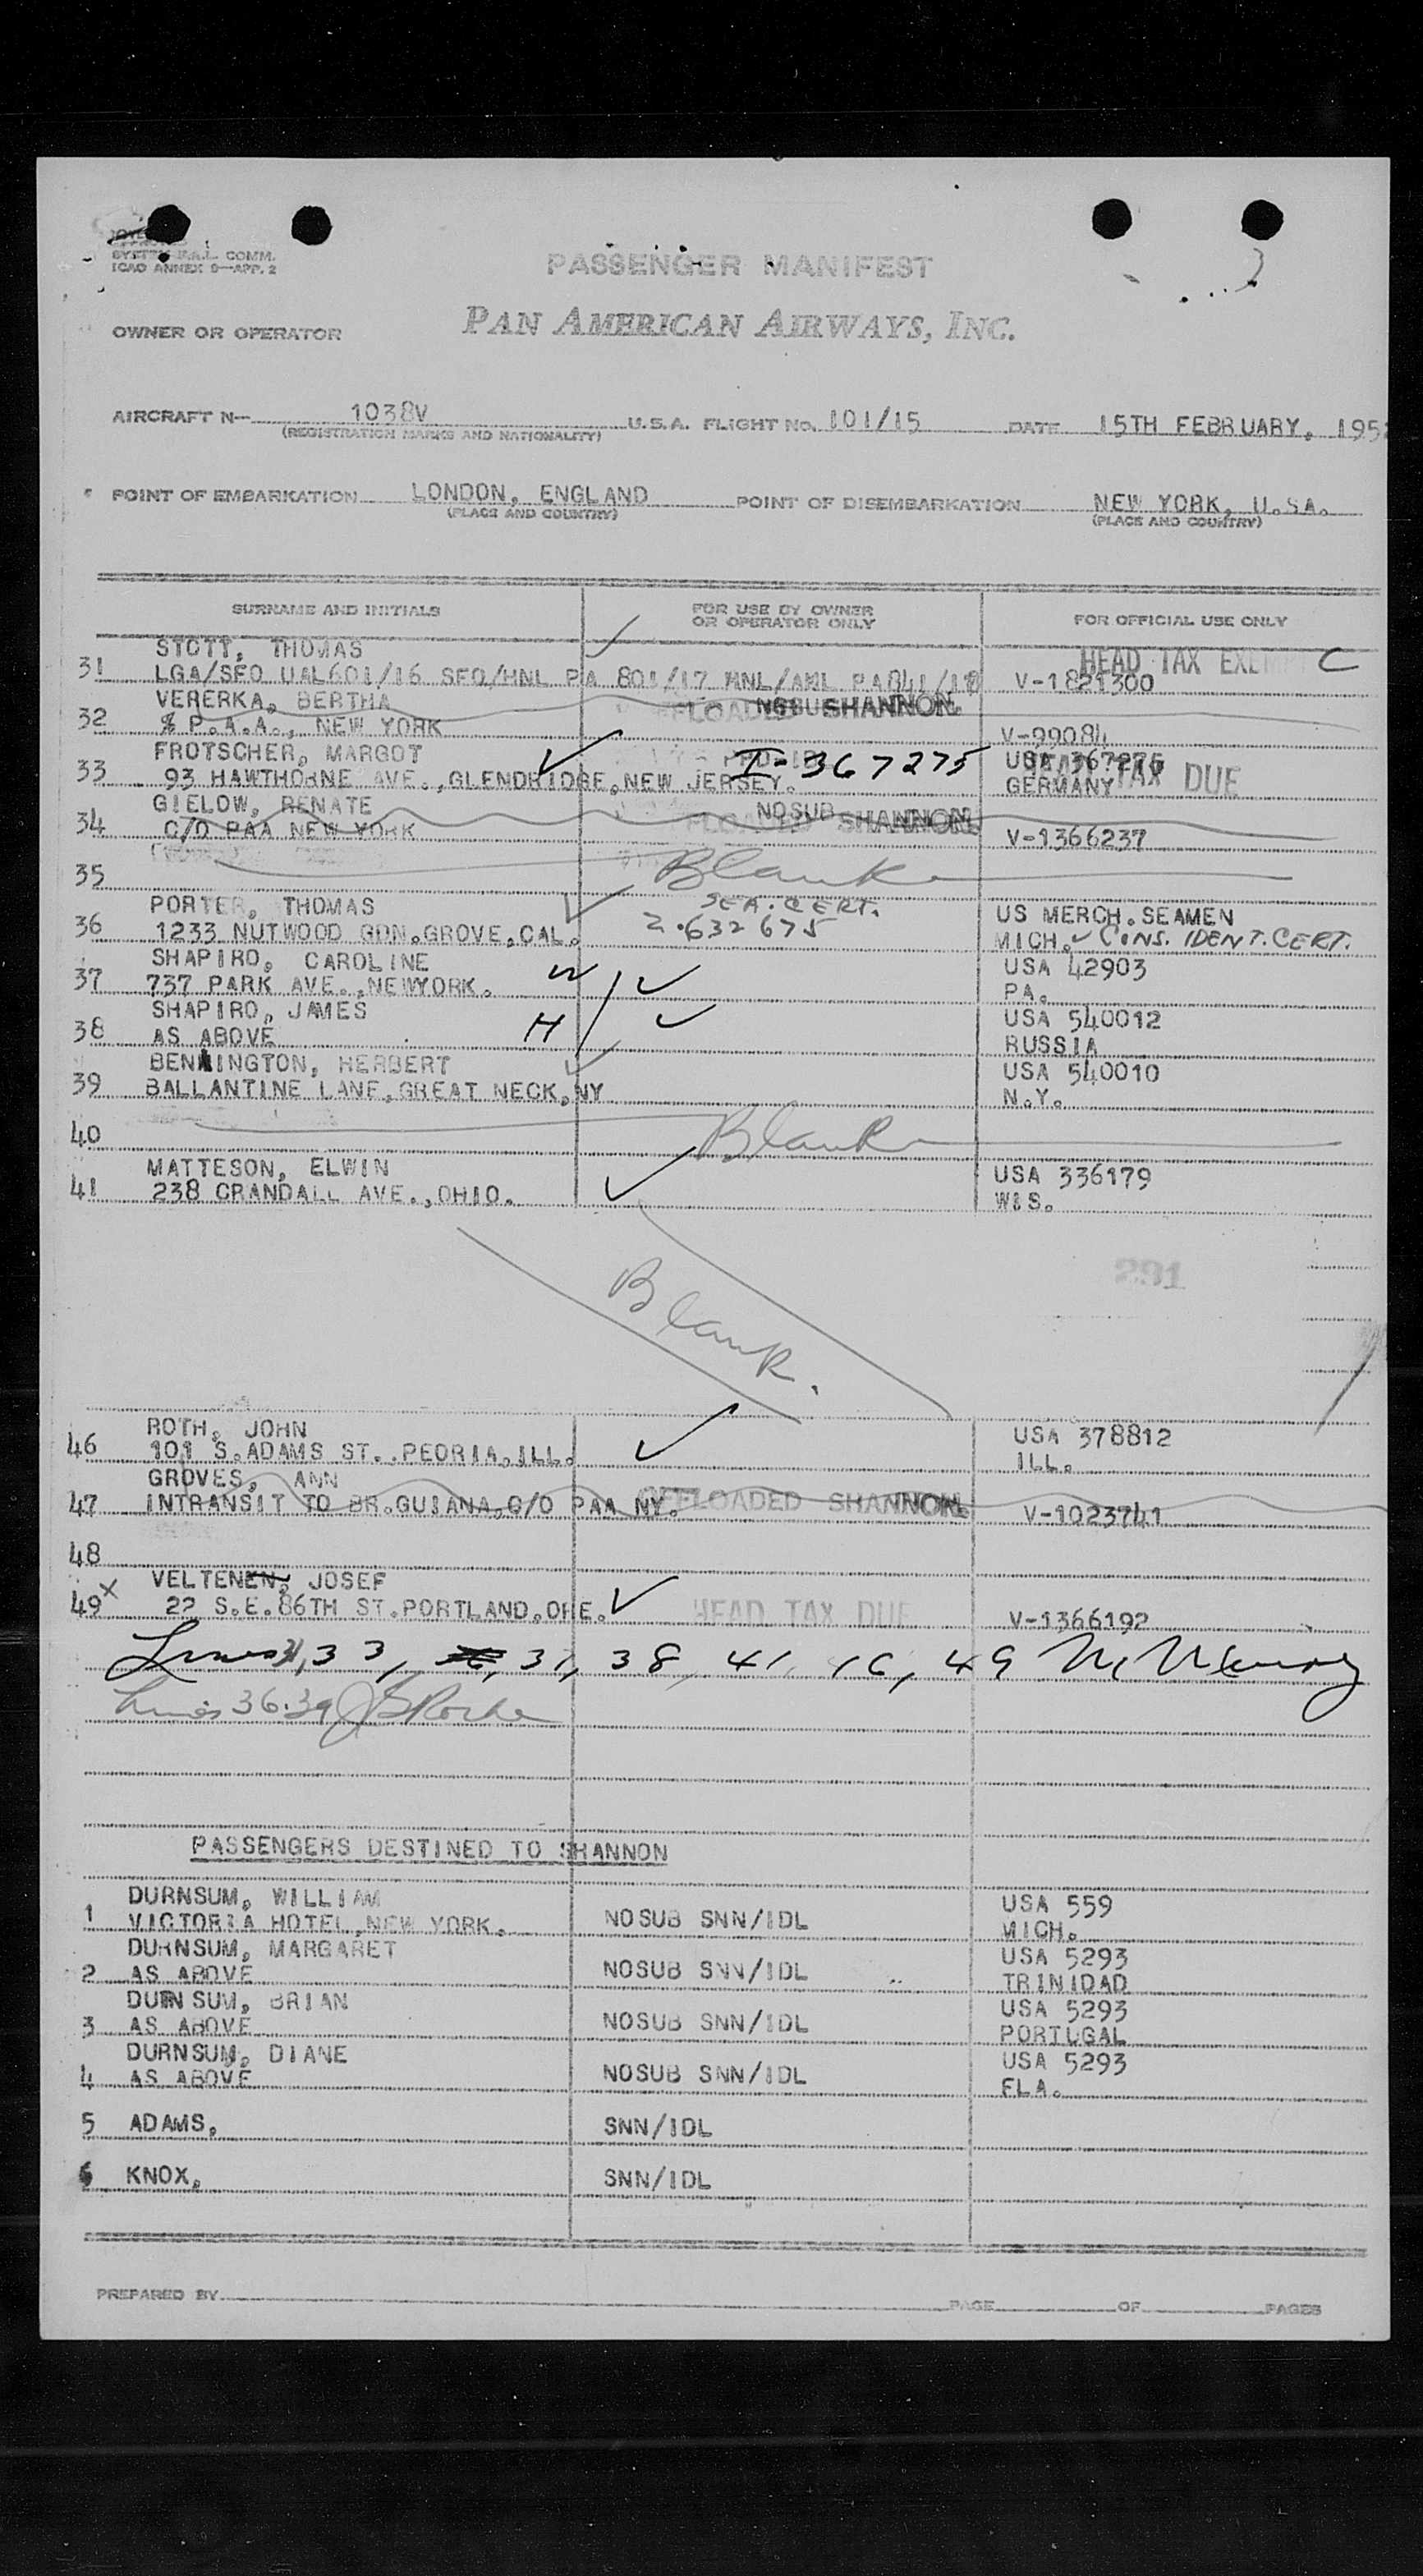 SYSTEM U.A.L. COMM.
ICAO ANNEX 9—APP. 2
PASSENGER MANIFEST
OWNER OR OPERATOR PAN AMERICAN AIRWAYS, INC.
AIRCRAFT N— 1038V U.S.A. FLIGHT NO. 101/15 DATE 15TH FEBRUARY, 195
(REGISTRATION MARKS AND NATIONALITY)
POINT OF EMBARKATION LONDON, ENGLAND POINT OF DISEMBARKATION NEW YORK, U.S.A.
(PLACE AND COUNTRY) (PLACE AND COUNTRY)
SURNAME AND INITIALS FOR USE BY OWNER OR OPERATOR ONLY FOR OFFICIAL USE ONLY
STOTT, THOMAS HEAD TAX EXEMPT C
31 LGA/SFO UAL601/16 SFO/HNL PA 801/17 HNL/AKL PA841/18 V-1821300
VERERKA, BERTHA NOSUB SHANNON.
32 % P.A.A., NEW YORK V-99084
FROTSCHER, MARGOT I-367275 USA 367275
33 93 HAWTHORNE AVE.,GLENDRIDGE,NEW JERSEY. GERMANY HEAD TAX DUE
GIELOW, RENATE NOSUB SHANNON.
34 C/O PAA NEW YORK V-1366237
35 Blank
PORTER, THOMAS SEA. CERT. US MERCH.SEAMEN
36 1233 NUTWOOD GDN.GROVE,CAL. Z.632675 MICH. CONS. IDENT. CERT.
SHAPIRO, CAROLINE USA 42903
37 737 PARK AVE.,NEWYORK. W PA.
SHAPIRO, JAMES USA 540012
38 AS ABOVE H RUSSIA
BENNINGTON, HERBERT USA 540010
39 BALLANTINE LANE,GREAT NECK,NY N.Y.
40 Blank
MATTESON, ELWIN USA 336179
41 238 CRANDALL AVE.,OHIO. WIS.
291
Blank.
ROTH, JOHN USA 378812
46 101 S.ADAMS ST.,PEORIA,ILL. ILL.
GROVES, ANN OFFLOADED SHANNON.
47 INTRANSIT TO BR.GUIANA,C/O PAA NY. V-1023741
48
VELTENEN, JOSEF
49 X 22 S.E.86TH ST.PORTLAND.ORE. HEAD TAX DUE V-1366192
Lines 31, 33, 37, 38, 41, 46, 49
Lines 36.39
PASSENGERS DESTINED TO SHANNON
DURNSUM, WILLIAM USA 559
1 VICTORIA HOTEL,NEW YORK. NOSUB SNN/IDL MICH.
DURNSUM, MARGARET USA 5293
2 AS ABOVE NOSUB SNN/IDL TRINIDAD
DURNSUM, BRIAN USA 5293
3 AS ABOVE NOSUB SNN/IDL PORTUGAL
DURNSUM, DIANE USA 5293
4 AS ABOVE NOSUB SNN/IDL FLA.
5 ADAMS, SNN/IDL
6 KNOX, SNN/IDL
PREPARED BY PAGE OF PAGES